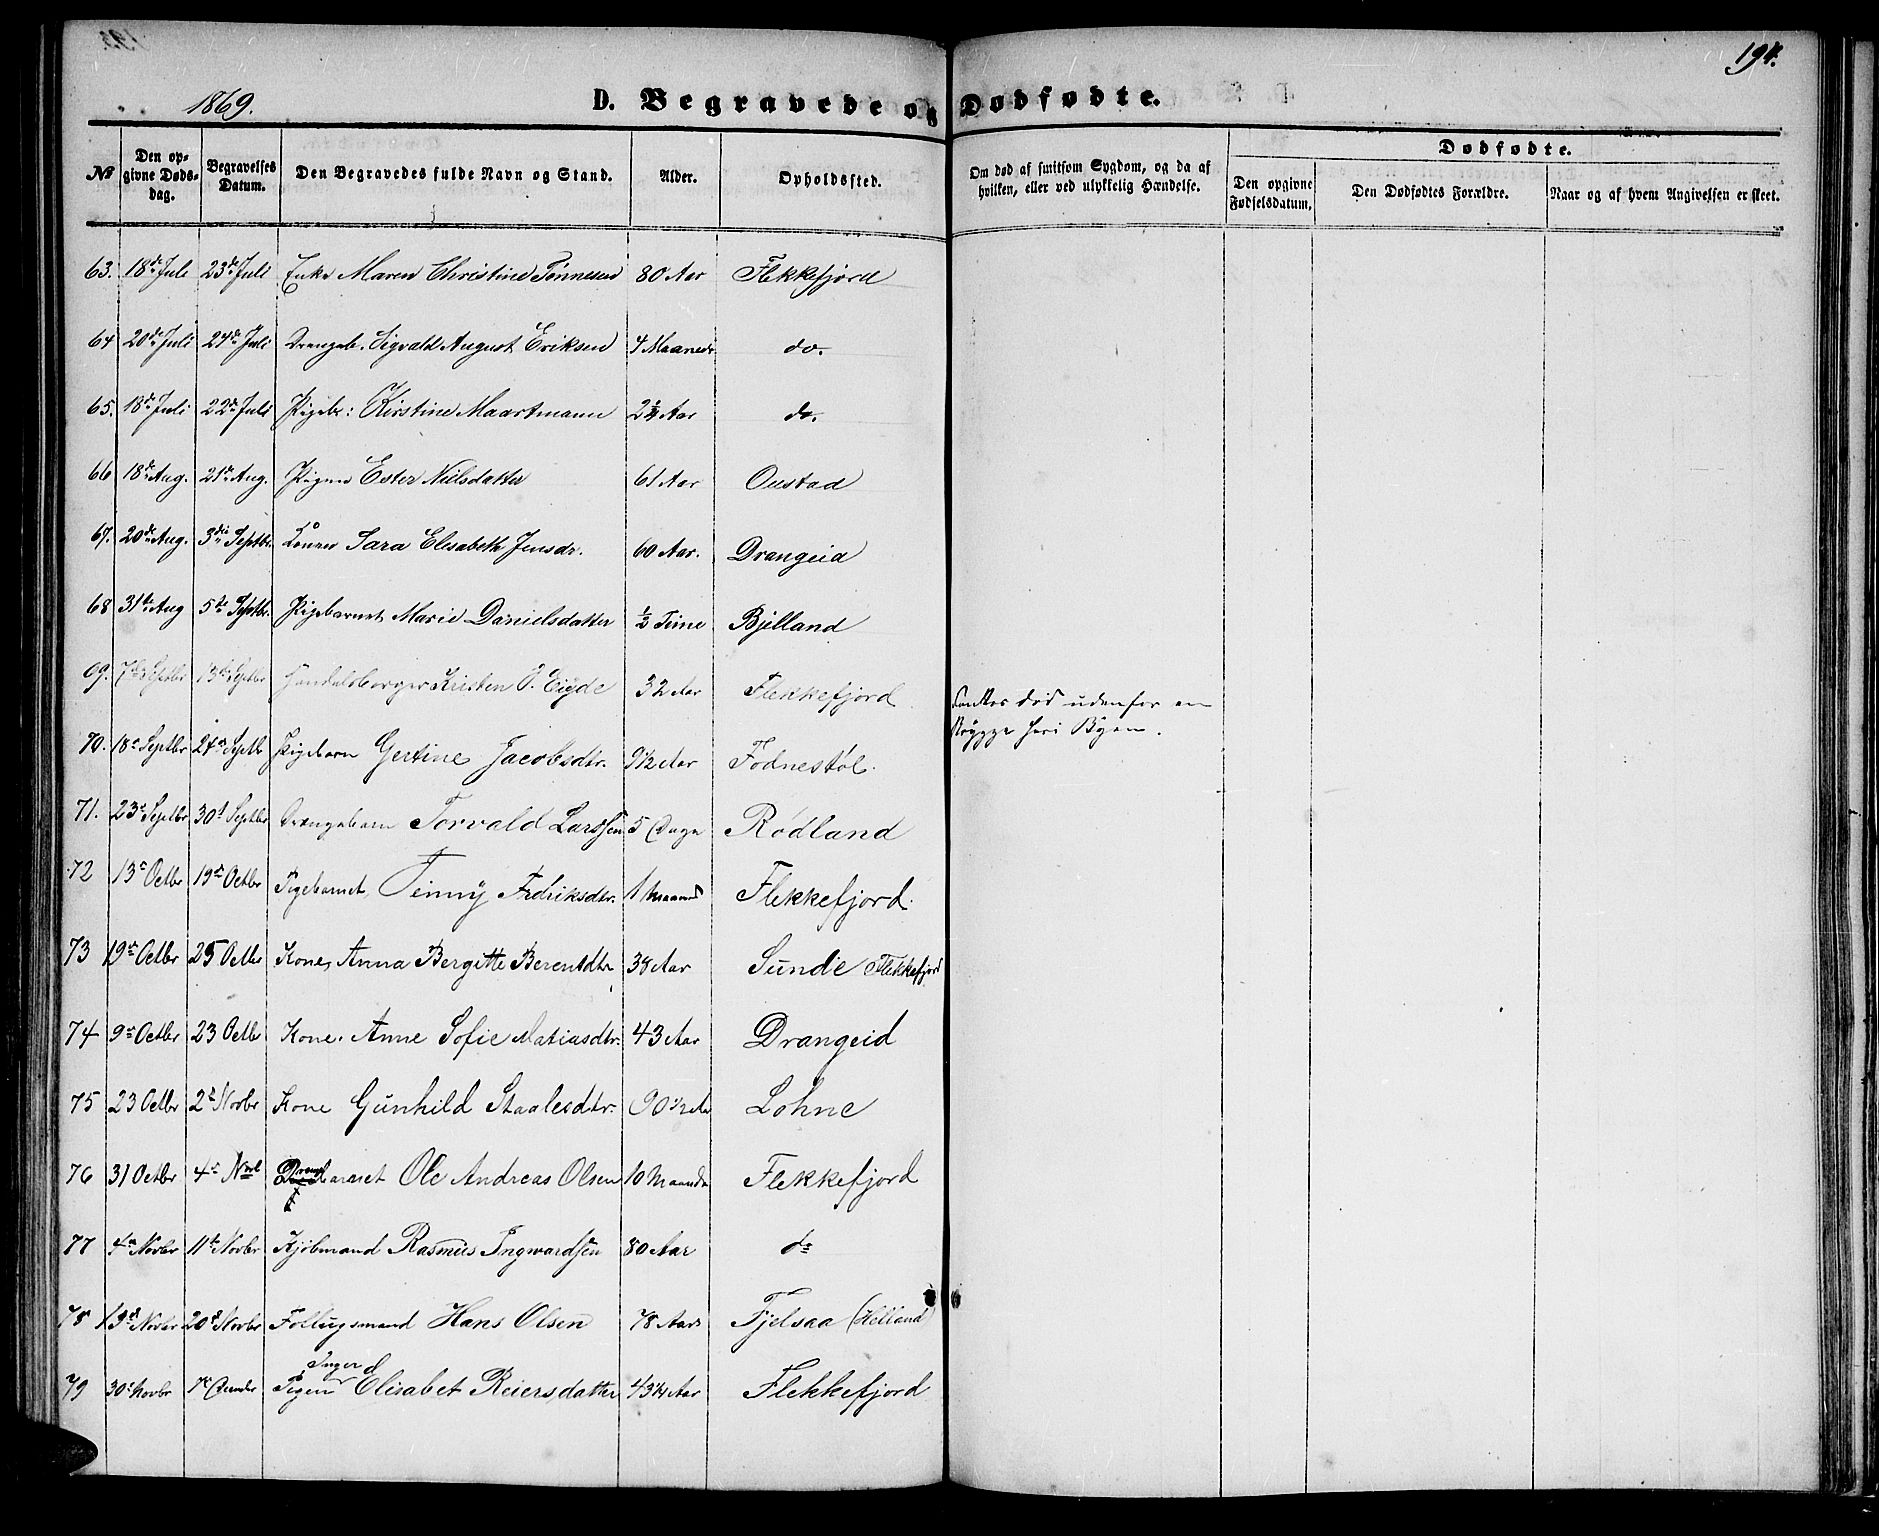 194.
1869.
D. Begravede og Dødfødte.
№
Den opgivne Dødsdag.
Begravelses Datum.
Den Begravedes fulde Navn og Stand.
Alder.
Opholdssted.
Om død af smitsom Sygdom, og da af hvilken, eller ved ulykkelig Hændelse.
Dødfødte.
Den opgivne Fødselsdatum.
Den Dødfødtes Forældre.
Naar og af hvem Angivelsen er skeet.
63. 18de Juli 23de Juli Enke Maren Christine Tønnesen 80 Aar Flekkefjord
64 20de Juli 24de Juli Drengeb. Sigvald August Eriksen 4 Maaneder do.
65. 18de Juli 22de Juli Pigeb: Kirstine Maartmann 2¼ Aar do.
66 18de Aug. 21de Aug. Pigen Ester Nielsdatter 61 Aar Oustad
67. 20de Aug. 3die Septbr. Konen Sara Elisabeth Jensdr. 60 Aar. Drangeid
68 31te Aug 5te Septbr. Pigebarnet Marie Danielsdatter ½ Time Bjelland
69. 7de Septbr 13de Septbr Handelsborger Kristen O. Eigde 32 Aar Flekkefjord Fandtes død udenfor en Brygge her i Byen.
70. 18e Septbr 24de Septb Pigebarn Gertine Jacobsdtr. 9½ Aar Fodnestøl.
71. 23e Septbr 30t Septbr Drengebarn Torvald Larssen 5 Dage Rødland
72 13e Octbr 19de Octbr Pigebarnet, Jenny Fredriksdtr. 1 Maaned Flekkefjord.
73 19de Octbr 25 Octbr Kone, Anna Bergitte Berentdtr 38 Aar Sunde Flekkefjord
74 9de Octbr 23 Octbr Kone. Anne Sofie Matiasdtr. 43 Aar Drangeid
75 23 Octbr 2d Novbr Kone Gunhild Staalesdtr. 90½ Aa Lohne
76 31 Octbr 4de Novb Drengebarnet Ole Andreas Olsen 10 Maaneder Flekkefjord
77 4de Novbr 11te Novbr Kjøbmand Rasmus Ingwardsen 80 Aar do
78 13d Novbr 20d Novbr Føllugsmand Hans Olsen 78 Aar Fjelsaa (Helland)
79 30e Novbr 7de Decmbr Pigen Inger Elisabet Reiersdatter 43¼ Aar Flekkefjord